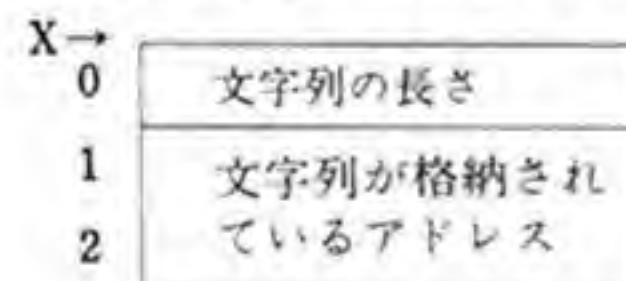 X→
0 文字列の長さ
1 文字列が格納され
2 ているアドレス